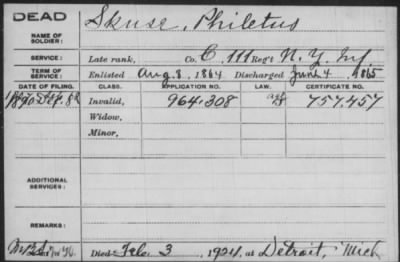 DEAD
Skuse, Philetus
NAME OF SOLDIER:
SERVICE: Late rank, Co. C, 111 Reg't N. Y. Inf.
TERM OF SERVICE: Enlisted Aug. 8, 1864 Discharged June 4, 1865
DATE OF FILING. CLASS. APPLICATION NO. LAW. CERTIFICATE NO.
1890 Invalid, 964.308 757.457
Widow,
Minor,
ADDITIONAL SERVICES:
REMARKS:
Died Feb. 3, 1924, at Detroit, Mich